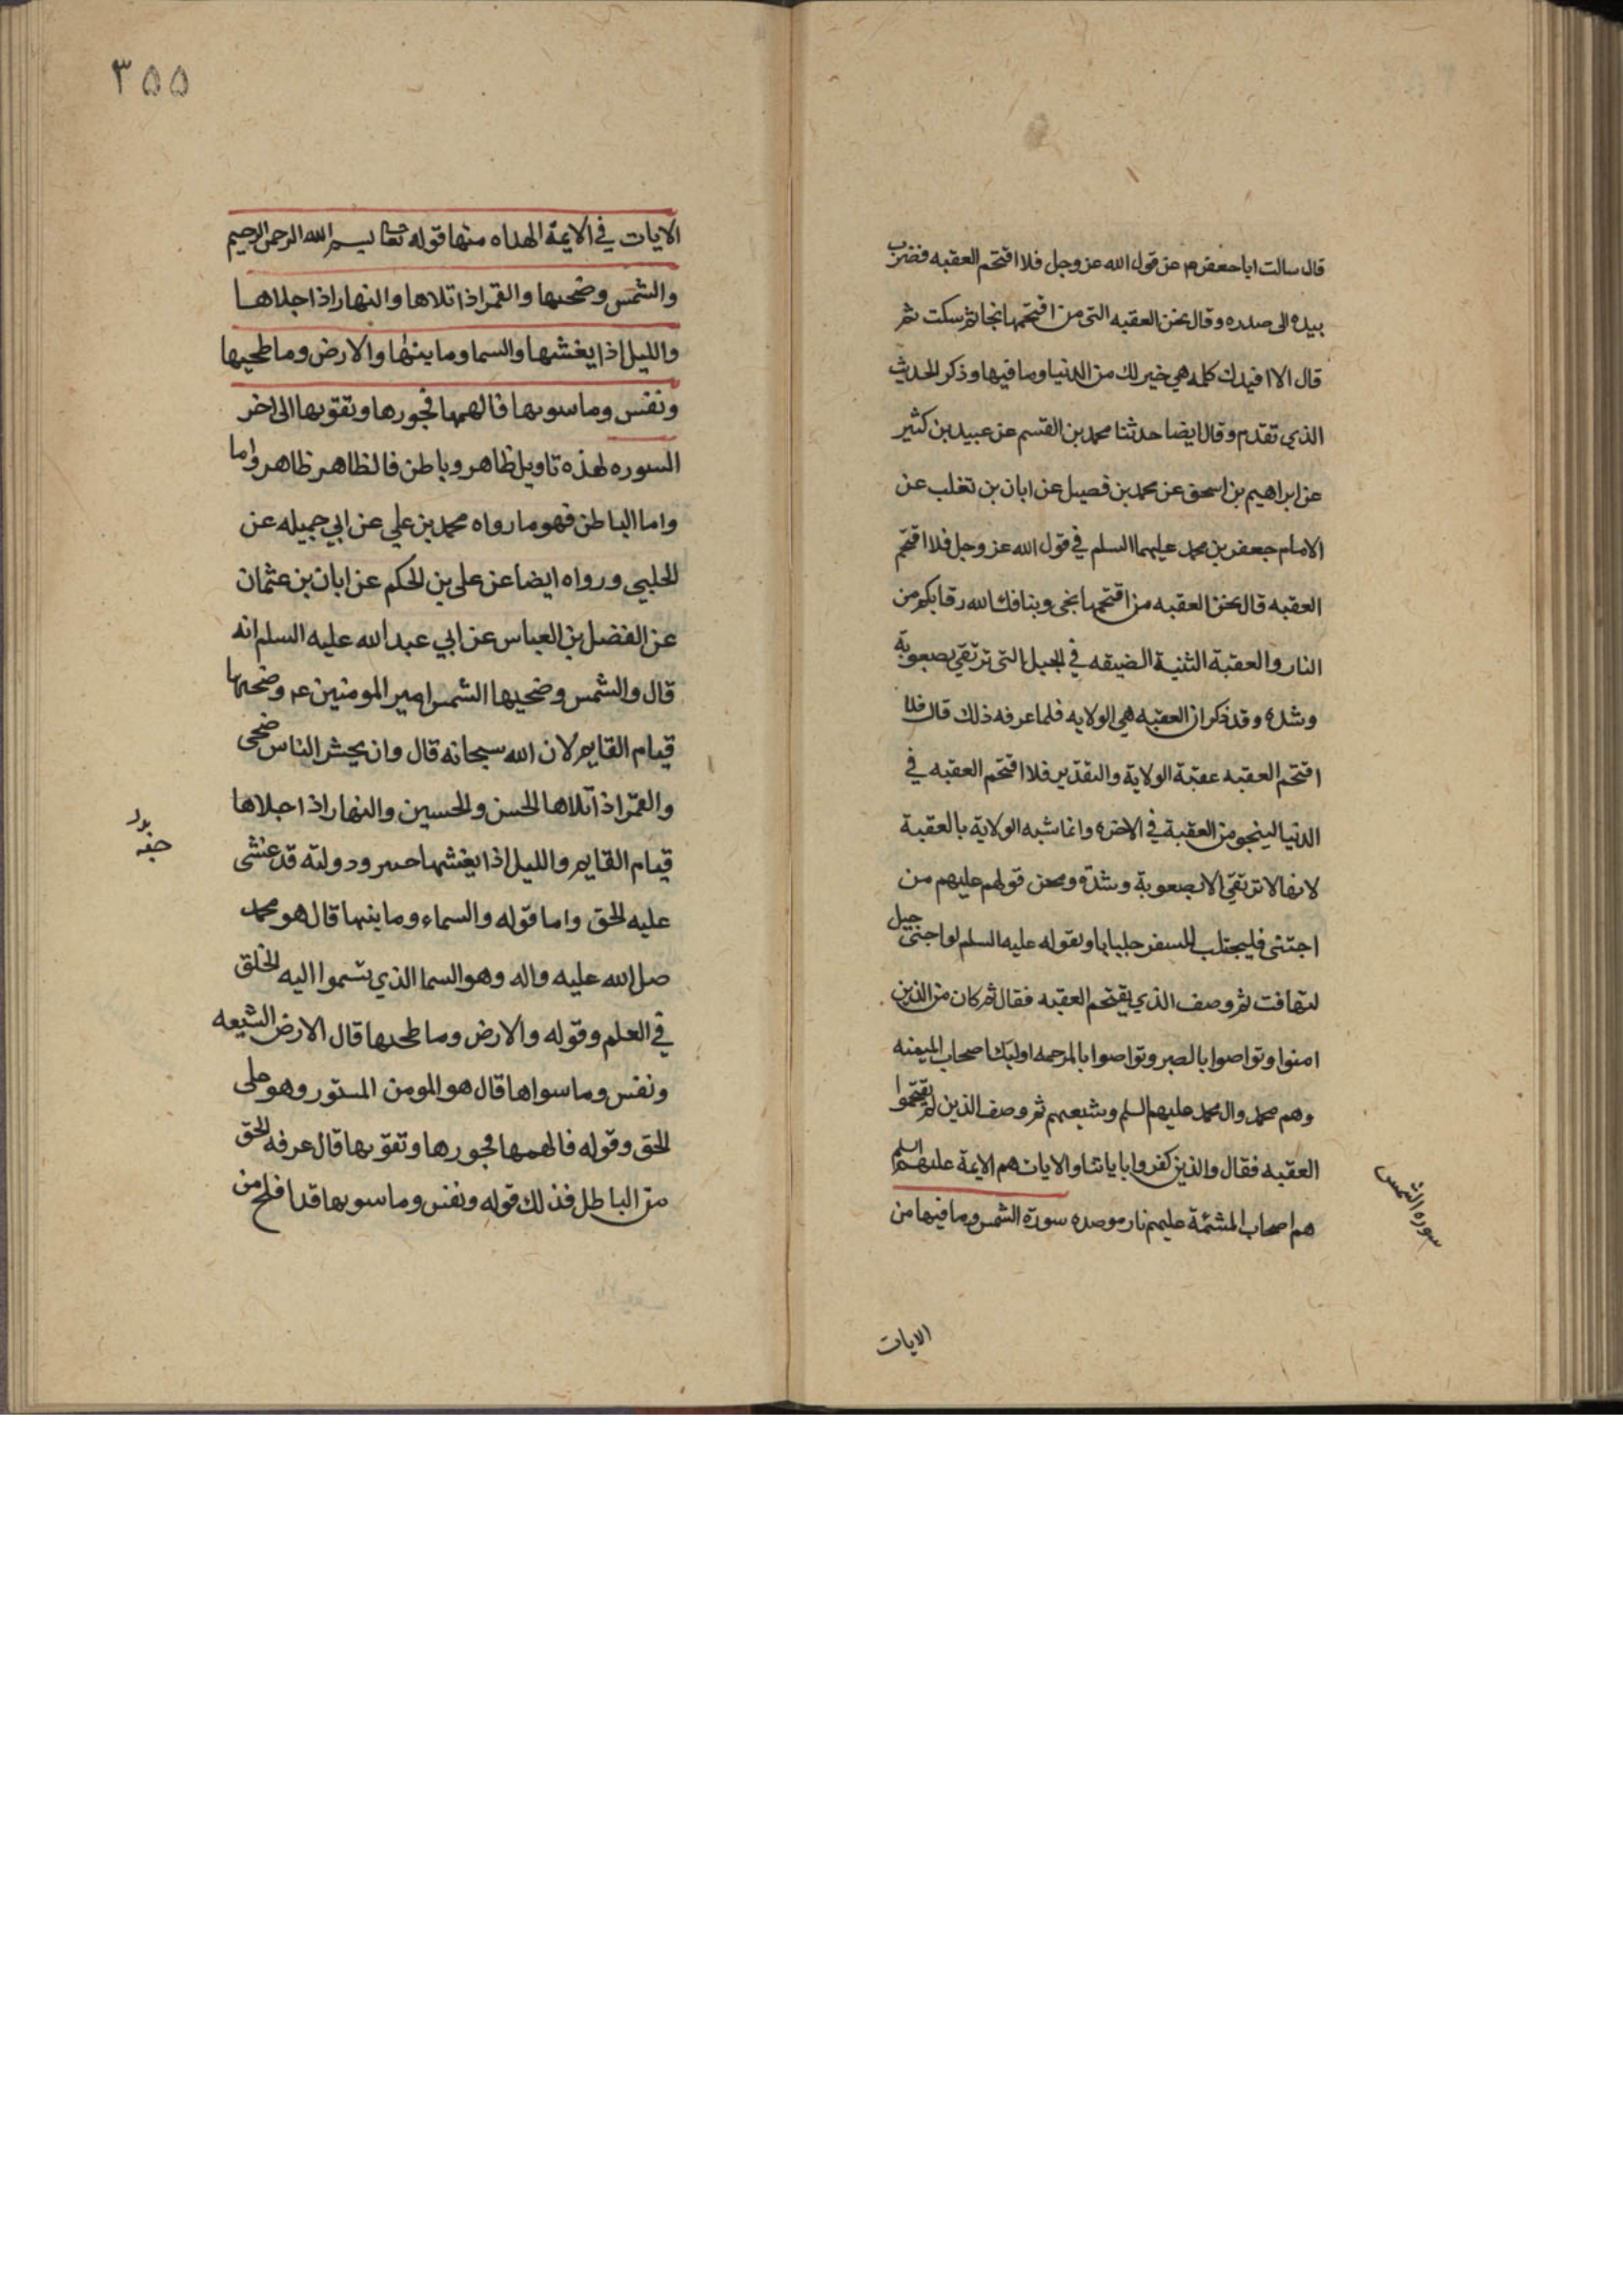 قال سالت ابا جعفر م عن قول الله عز وجل فلا اقتحم العقبه فضرب
بيده الى صدره وقال نحن العقبه التى من اقتحمها نجا ثم سكت ثم
قال الا افيدك كلمه هي خير لك من الدنيا وما فيها وذكر الحديث
الذي تقدم وقال ايضا حدثنا محمد بن القسم عن عبيد بن كثير
عن ابراهيم بن اسحق عن محمد بن فصيل عن ابان بن تغلب عن
الامام جعفر بن محمد عليهما السلم في قول الله عز وجل فلا اقتحم
العقبه قال نحن العقبه من اقتحمها نجى وبنا فك الله رقابكم من
النار والعقبة الثنية الضيقه في الجبل التى ترتقي بصعوبة
وشده وقد ذكر ان العقبه هي الولايه فلما عرفه ذلك قال فلا
اقتحم العقبه عقبة الولاية والتقدير فلا اقتحم العقبه في
الدنيا لينجو من العقبة في الاخره وانما شبه الولاية بالعقبة
لانها لا ترتقي الا بصعوبة وشدة ومحن قولهم عليهم من
احبنى فليجتلب للسفر جلبابا وبقوله عليه السلم لو احبنى جبل
لتهافت ثم وصف الذي يقتحم العقبه فقال ثم كان من الذين
امنوا وتواصوا بالصبر وتواصوا بالمرحمه اوليك اصحاب الميمنه
وهم محمد وال محمد عليهم السلم وشيعهم ثم وصف الذين لم يقتحموا
العقبه فقال والذين كفروا باياتنا والايات هم الايمة عليهم السلم
هم اصحاب المشئمة عليهم نار موصده سورة الشمس وما فيها من
سوره الشمس
الايات
٣٥٥
الايات في الايمة الهداه منها قوله تعا بسم الله الرحمن الرحيم
والشمس وضحيها والقمر اذا تلاها والنهار اذا جلاها
والليل اذا يغشيها والسما وما بينها والارض وما طحيها
ونفس وما سويها فالهمها فجورها وتقويها الى اخر
السوره لهذه تاويل ظاهر وباطن فالظاهر ظاهر واما
واما الباطن فهو ما رواه محمد بن علي عن ابي جميله عن
الحلبي ورواه ايضا عن على بن الحكم عن ابان بن عثمان
عن الفضل بن العباس عن ابي عبد الله عليه السلم انه
قال والشمس وضحيها الشمس امير المومنين ع وضحيها
قيام القايم لان الله سبحانه قال وان يحشر الناس ضحى
والقمر اذا تلاها الحسن والحسين والنهار اذا جلاها
قيام القايم والليل اذا يغشيها ودولته قد غشى
عليه الحق واما قوله والسماء وما بنيها قال هو محمد
صلى الله عليه واله وهو السما الذي يتسموا اليه الخلق
في العلم وقوله والارض وما طحيها قال الارض الشيعه
ونفس وما سواها قال هو المومن المستور وهو على
الحق وقوله فالهمها فجورها وتقويها قال عرفه الحق
من الباطل فذلك قوله ونفس وما سويها قد افلح من